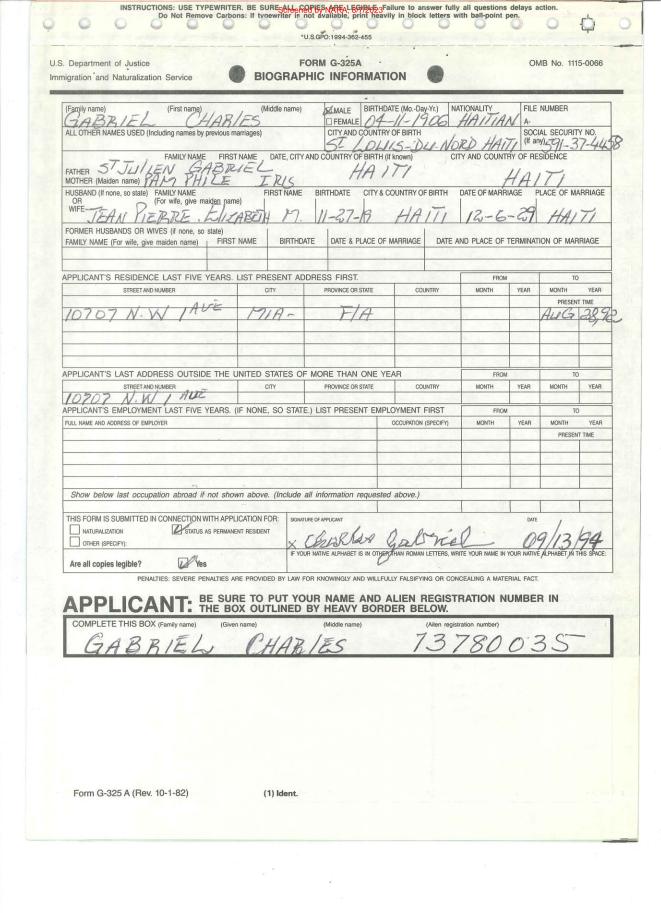 INSTRUCTIONS: USE TYPEWRITER. BE SURE ALL COPIES ARE LEGIBLE. Failure to answer fully all questions delays action.
Screened by NARA, 8/7/2023
Do Not Remove Carbons: If typewriter is not available, print heavily in block letters with ball-point pen.
*U.S.GPO:1994-362-455
U.S. Department of Justice
Immigration and Naturalization Service
FORM G-325A
BIOGRAPHIC INFORMATION
OMB No. 1115-0066
(Family name) (First name) (Middle name) MALE FEMALE BIRTHDATE (Mo.-Day-Yr.) NATIONALITY FILE NUMBER
GABRIEL CHARLES 04-11-1906 HAITIAN A-
ALL OTHER NAMES USED (Including names by previous marriages) CITY AND COUNTRY OF BIRTH SOCIAL SECURITY NO. (If any)
ST LOUIS-DU-NORD HAITI 591-37-4458
FAMILY NAME FIRST NAME DATE, CITY AND COUNTRY OF BIRTH (If known) CITY AND COUNTRY OF RESIDENCE
FATHER ST JULIEN GABRIEL HAITI HAITI
MOTHER (Maiden name) PAM PHILE IRIS
HUSBAND (If none, so state) OR WIFE FAMILY NAME (For wife, give maiden name) FIRST NAME BIRTHDATE CITY & COUNTRY OF BIRTH DATE OF MARRIAGE PLACE OF MARRIAGE
JEAN PIERRE. ELIZABETH M. 11-27-19 HAITI 12-6-29 HAITI
FORMER HUSBANDS OR WIVES (if none, so state)
FAMILY NAME (For wife, give maiden name) FIRST NAME BIRTHDATE DATE & PLACE OF MARRIAGE DATE AND PLACE OF TERMINATION OF MARRIAGE
APPLICANT'S RESIDENCE LAST FIVE YEARS. LIST PRESENT ADDRESS FIRST. FROM TO
STREET AND NUMBER CITY PROVINCE OR STATE COUNTRY MONTH YEAR MONTH YEAR
PRESENT TIME
10707 N.W 1 AVE MIA- F/A AUG 28,92
APPLICANT'S LAST ADDRESS OUTSIDE THE UNITED STATES OF MORE THAN ONE YEAR FROM TO
STREET AND NUMBER CITY PROVINCE OR STATE COUNTRY MONTH YEAR MONTH YEAR
10707 N.W 1 AVE
APPLICANT'S EMPLOYMENT LAST FIVE YEARS. (IF NONE, SO STATE.) LIST PRESENT EMPLOYMENT FIRST FROM TO
FULL NAME AND ADDRESS OF EMPLOYER OCCUPATION (SPECIFY) MONTH YEAR MONTH YEAR
PRESENT TIME
Show below last occupation abroad if not shown above. (Include all information requested above.)
THIS FORM IS SUBMITTED IN CONNECTION WITH APPLICATION FOR: SIGNATURE OF APPLICANT DATE
NATURALIZATION STATUS AS PERMANENT RESIDENT
OTHER (SPECIFY):
x Charles Gabriel 09/13/94
IF YOUR NATIVE ALPHABET IS IN OTHER THAN ROMAN LETTERS, WRITE YOUR NAME IN YOUR NATIVE ALPHABET IN THIS SPACE:
Are all copies legible? Yes
PENALTIES: SEVERE PENALTIES ARE PROVIDED BY LAW FOR KNOWINGLY AND WILLFULLY FALSIFYING OR CONCEALING A MATERIAL FACT.
APPLICANT: BE SURE TO PUT YOUR NAME AND ALIEN REGISTRATION NUMBER IN
THE BOX OUTLINED BY HEAVY BORDER BELOW.
COMPLETE THIS BOX (Family name) (Given name) (Middle name) (Alien registration number)
GABRIEL CHARLES 73780035
Form G-325 A (Rev. 10-1-82) (1) Ident.